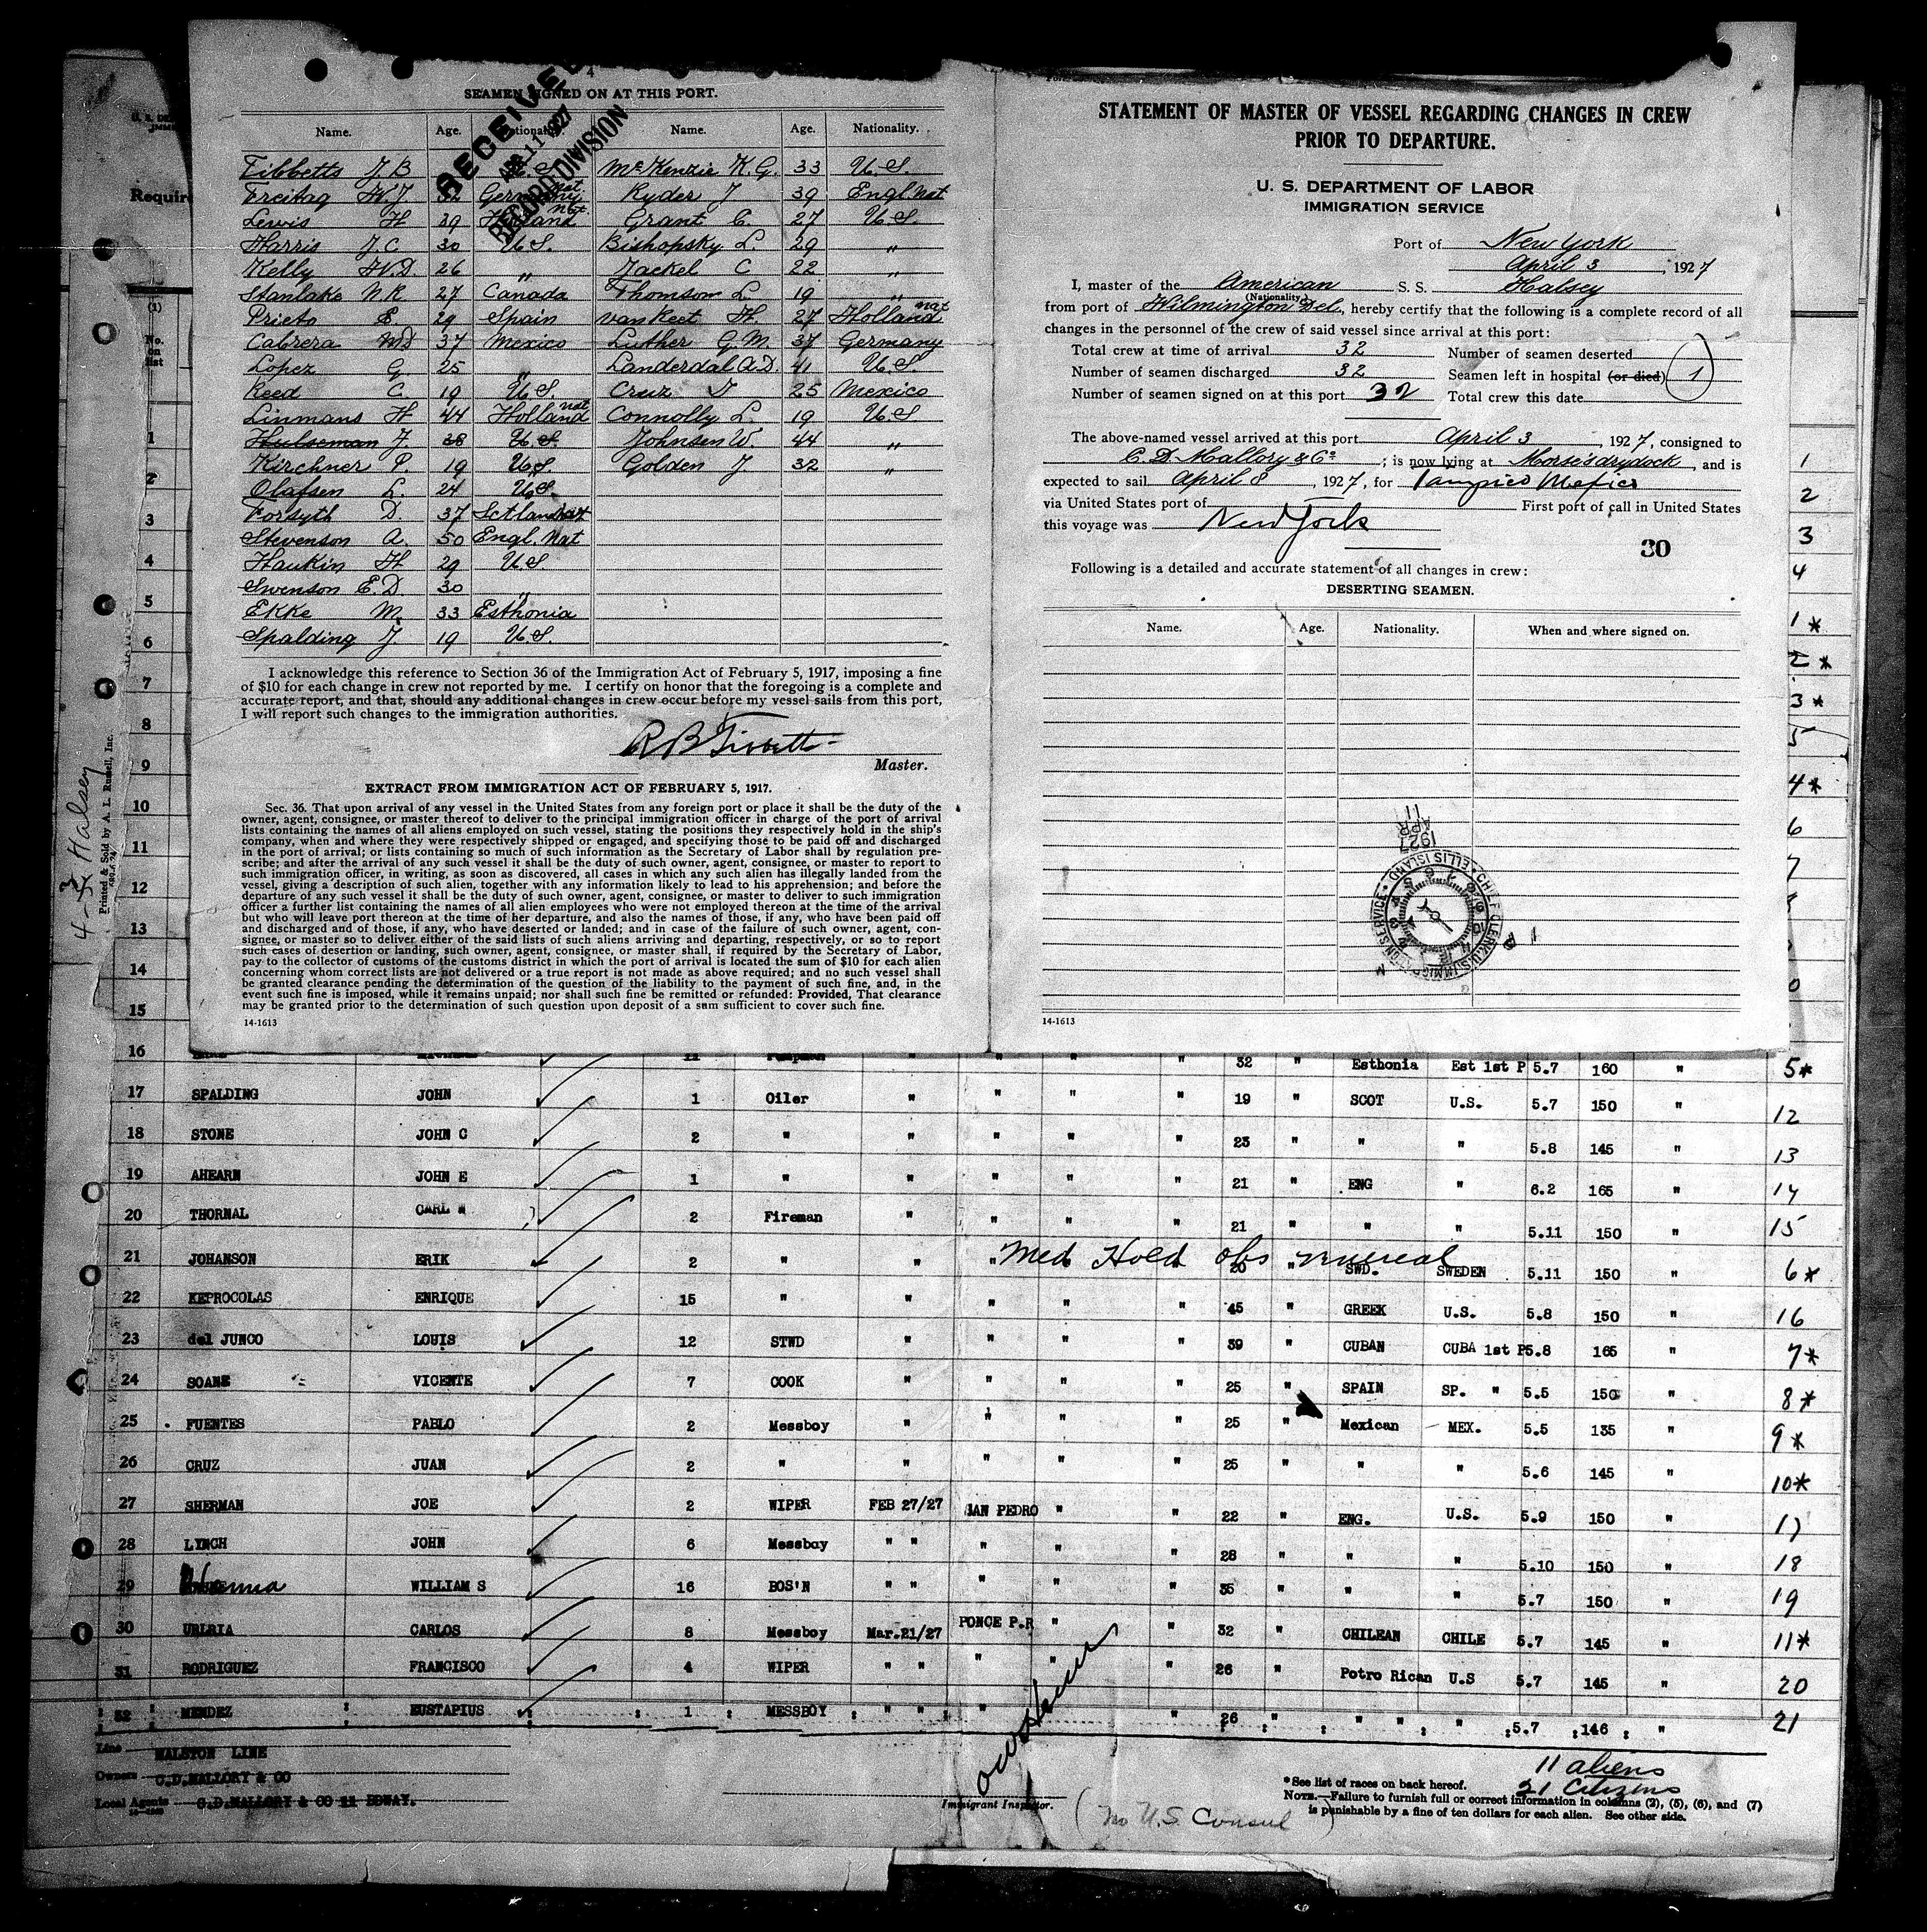 4
SEAMEN SIGNED ON AT THIS PORT.
RECEIVED
APR 11 1927
RECORD DIVISION
Name. Age. Nationality. Name. Age. Nationality.
Tibbetts J B U.S. McKenzie K.G. 33 U.S.
Freitag H.J. 32 Germany nat. Ryder J 39 Engl. Nat
Lewis H 39 Holland nat. Grant C. 27 U.S.
Harris J.C. 30 U.S. Bishopsky L. 29 "
Kelly H.D 26 " Jackel C 22 "
Stanlake N R 27 Canada Thomson L. 19 "
Prieto E. 29 Spain van Keet H. 27 Holland nat
Cabrera 37 Mexico Luther G.M. 37 Germany
Lopez G. 25 " Landerdal A.D. 41 U.S.
Reed C. 19 U.S. Cruz J 25 Mexico
Linmans H 44 Holland nat Connolly L. 19 U.S.
Hulseman J. 38 U.S. Johnsen W. 44 "
Kirchner P. 19 U.S. Golden J. 32 "
Olafsen L. 24 U.S.
Forsyth D 37 Sctland nat
Stevenson A. 50 Engl. Nat
Haukin H 29 U.S.
Swenson E.D 30 "
Ekke M. 33 Esthonia
Spalding J. 19 U.S.
I acknowledge this reference to Section 36 of the Immigration Act of February 5, 1917, imposing a fine
of $10 for each change in crew not reported by me. I certify on honor that the foregoing is a complete and
accurate report, and that, should any additional changes in crew occur before my vessel sails from this port,
I will report such changes to the immigration authorities.
R B Tibbetts
Master.
EXTRACT FROM IMMIGRATION ACT OF FEBRUARY 5, 1917.
Sec. 36. That upon arrival of any vessel in the United States from any foreign port or place it shall be the duty of the
owner, agent, consignee, or master thereof to deliver to the principal immigration officer in charge of the port of arrival
lists containing the names of all aliens employed on such vessel, stating the positions they respectively hold in the ship's
company, when and where they were respectively shipped or engaged, and specifying those to be paid off and discharged
in the port of arrival; or lists containing so much of such information as the Secretary of Labor shall by regulation pre-
scribe; and after the arrival of any such vessel it shall be the duty of such owner, agent, consignee, or master to report to
such immigration officer, in writing, as soon as discovered, all cases in which any such alien has illegally landed from the
vessel, giving a description of such alien, together with any information likely to lead to his apprehension; and before the
departure of any such vessel it shall be the duty of such owner, agent, consignee, or master to deliver to such immigration
officer a further list containing the names of all alien employees who were not employed thereon at the time of the arrival
but who will leave port thereon at the time of her departure, and also the names of those, if any, who have been paid off
and discharged and of those, if any, who have deserted or landed; and in case of the failure of such owner, agent, con-
signee, or master so to deliver either of the said lists of such aliens arriving and departing, respectively, or so to report
such cases of desertion or landing, such owner, agent, consignee, or master shall, if required by the Secretary of Labor,
pay to the collector of customs of the customs district in which the port of arrival is located the sum of $10 for each alien
concerning whom correct lists are not delivered or a true report is not made as above required; and no such vessel shall
be granted clearance pending the determination of the question of the liability to the payment of such fine, and, in the
event such fine is imposed, while it remains unpaid; nor shall such fine be remitted or refunded: Provided, That clearance
may be granted prior to the determination of such question upon deposit of a sum sufficient to cover such fine.
14-1613
STATEMENT OF MASTER OF VESSEL REGARDING CHANGES IN CREW
PRIOR TO DEPARTURE.
U. S. DEPARTMENT OF LABOR
IMMIGRATION SERVICE
Port of New York
April 3, 1927
I, master of the American S. S. Halsey
(Nationality)
from port of Wilmington Del., hereby certify that the following is a complete record of all
changes in the personnel of the crew of said vessel since arrival at this port:
Total crew at time of arrival 32 Number of seamen deserted
Number of seamen discharged 32 Seamen left in hospital (or died) 1
Number of seamen signed on at this port 32 Total crew this date
The above-named vessel arrived at this port April 3, 1927, consigned to
C. D. Mallory & Co; is now lying at Morse's drydock, and is
expected to sail April 8, 1927, for Tampico Mexico
via United States port of First port of call in United States
this voyage was New York
30
Following is a detailed and accurate statement of all changes in crew:
DESERTING SEAMEN.
Name. Age. Nationality. When and where signed on.
1927 APR 11
CHIEF CLERK U.S. IMMIGRATION SERVICE ELLIS ISLAND
14-1613
Requir
(1)
No. on list
4-3 Halsey
Printed & Sold by A. L. Russell, Inc.
1
2
3
4
5
6
7
8
9
10
11
12
13
14
15
1
2
3
4
1*
2*
3*
5
4*
6
7
16 11 Pumpman " " " " 32 " Esthonia Est 1st P 5.7 160 " 5*
17 SPALDING JOHN 1 Oiler " " " " 19 " SCOT U.S. 5.7 150 " 12
18 STONE JOHN C 2 " " " " " 23 " " " 5.8 145 " 13
19 AHEARN JOHN E 1 " " " " " 21 " ENG " 6.2 165 " 14
20 THORNAL CARL W 2 Fireman " " " " 21 " " " 5.11 150 " 15
21 JOHANSON ERIK 2 " " " Med Hold obs venereal 20 " SWD. SWEDEN 5.11 150 " 6*
22 KEPROCOLAS ENRIQUE 15 " " " " " 45 " GREEK U.S. 5.8 150 " 16
23 del JUNCO LOUIS 12 STWD " " " " 39 " CUBAN CUBA 1st P5.8 165 " 7*
24 SOANE VICENTE 7 COOK " " " " 25 " SPAIN SP. " 5.5 150 " 8*
25 FUENTES PABLO 2 Messboy " " " " 25 Mexican MEX. 5.5 135 " 9*
26 CRUZ JUAN 2 " " " " " 25 " " " 5.6 145 " 10*
27 SHERMAN JOE 2 WIPER FEB 27/27 SAN PEDRO " " 22 " ENG. U.S. 5.9 150 " 17
28 LYNCH JOHN 6 Messboy " " " " " 28 " " " 5.10 150 " 18
29 WILLIAM S 16 BOS'N " " " " " 35 " " " 5.7 150 " 19
30 URLRIA CARLOS 8 Messboy Mar.21/27 PONCE P.R " " 32 " CHILEAN CHILE 5.7 145 " 11*
31 RODRIGUEZ FRANCISCO 4 WIPER " " " " " 26 " Potro Rican U.S 5.7 145 " 20
32 MENDEZ EUSTAPIUS 1 MESSBOY " " " " 26 " " " " 5.7 146 " 21
Line MALSTON LINE
Owners C.D.MALLORY & CO
Local Agents C.D.MALLORY & CO 11 BDWAY.
Immigrant Inspector.
(No U.S. Consul)
11 aliens
21 Citizens
*See list of races on back hereof.
NOTE.—Failure to furnish full or correct information in columns (2), (5), (6), and (7)
is punishable by a fine of ten dollars for each alien. See other side.